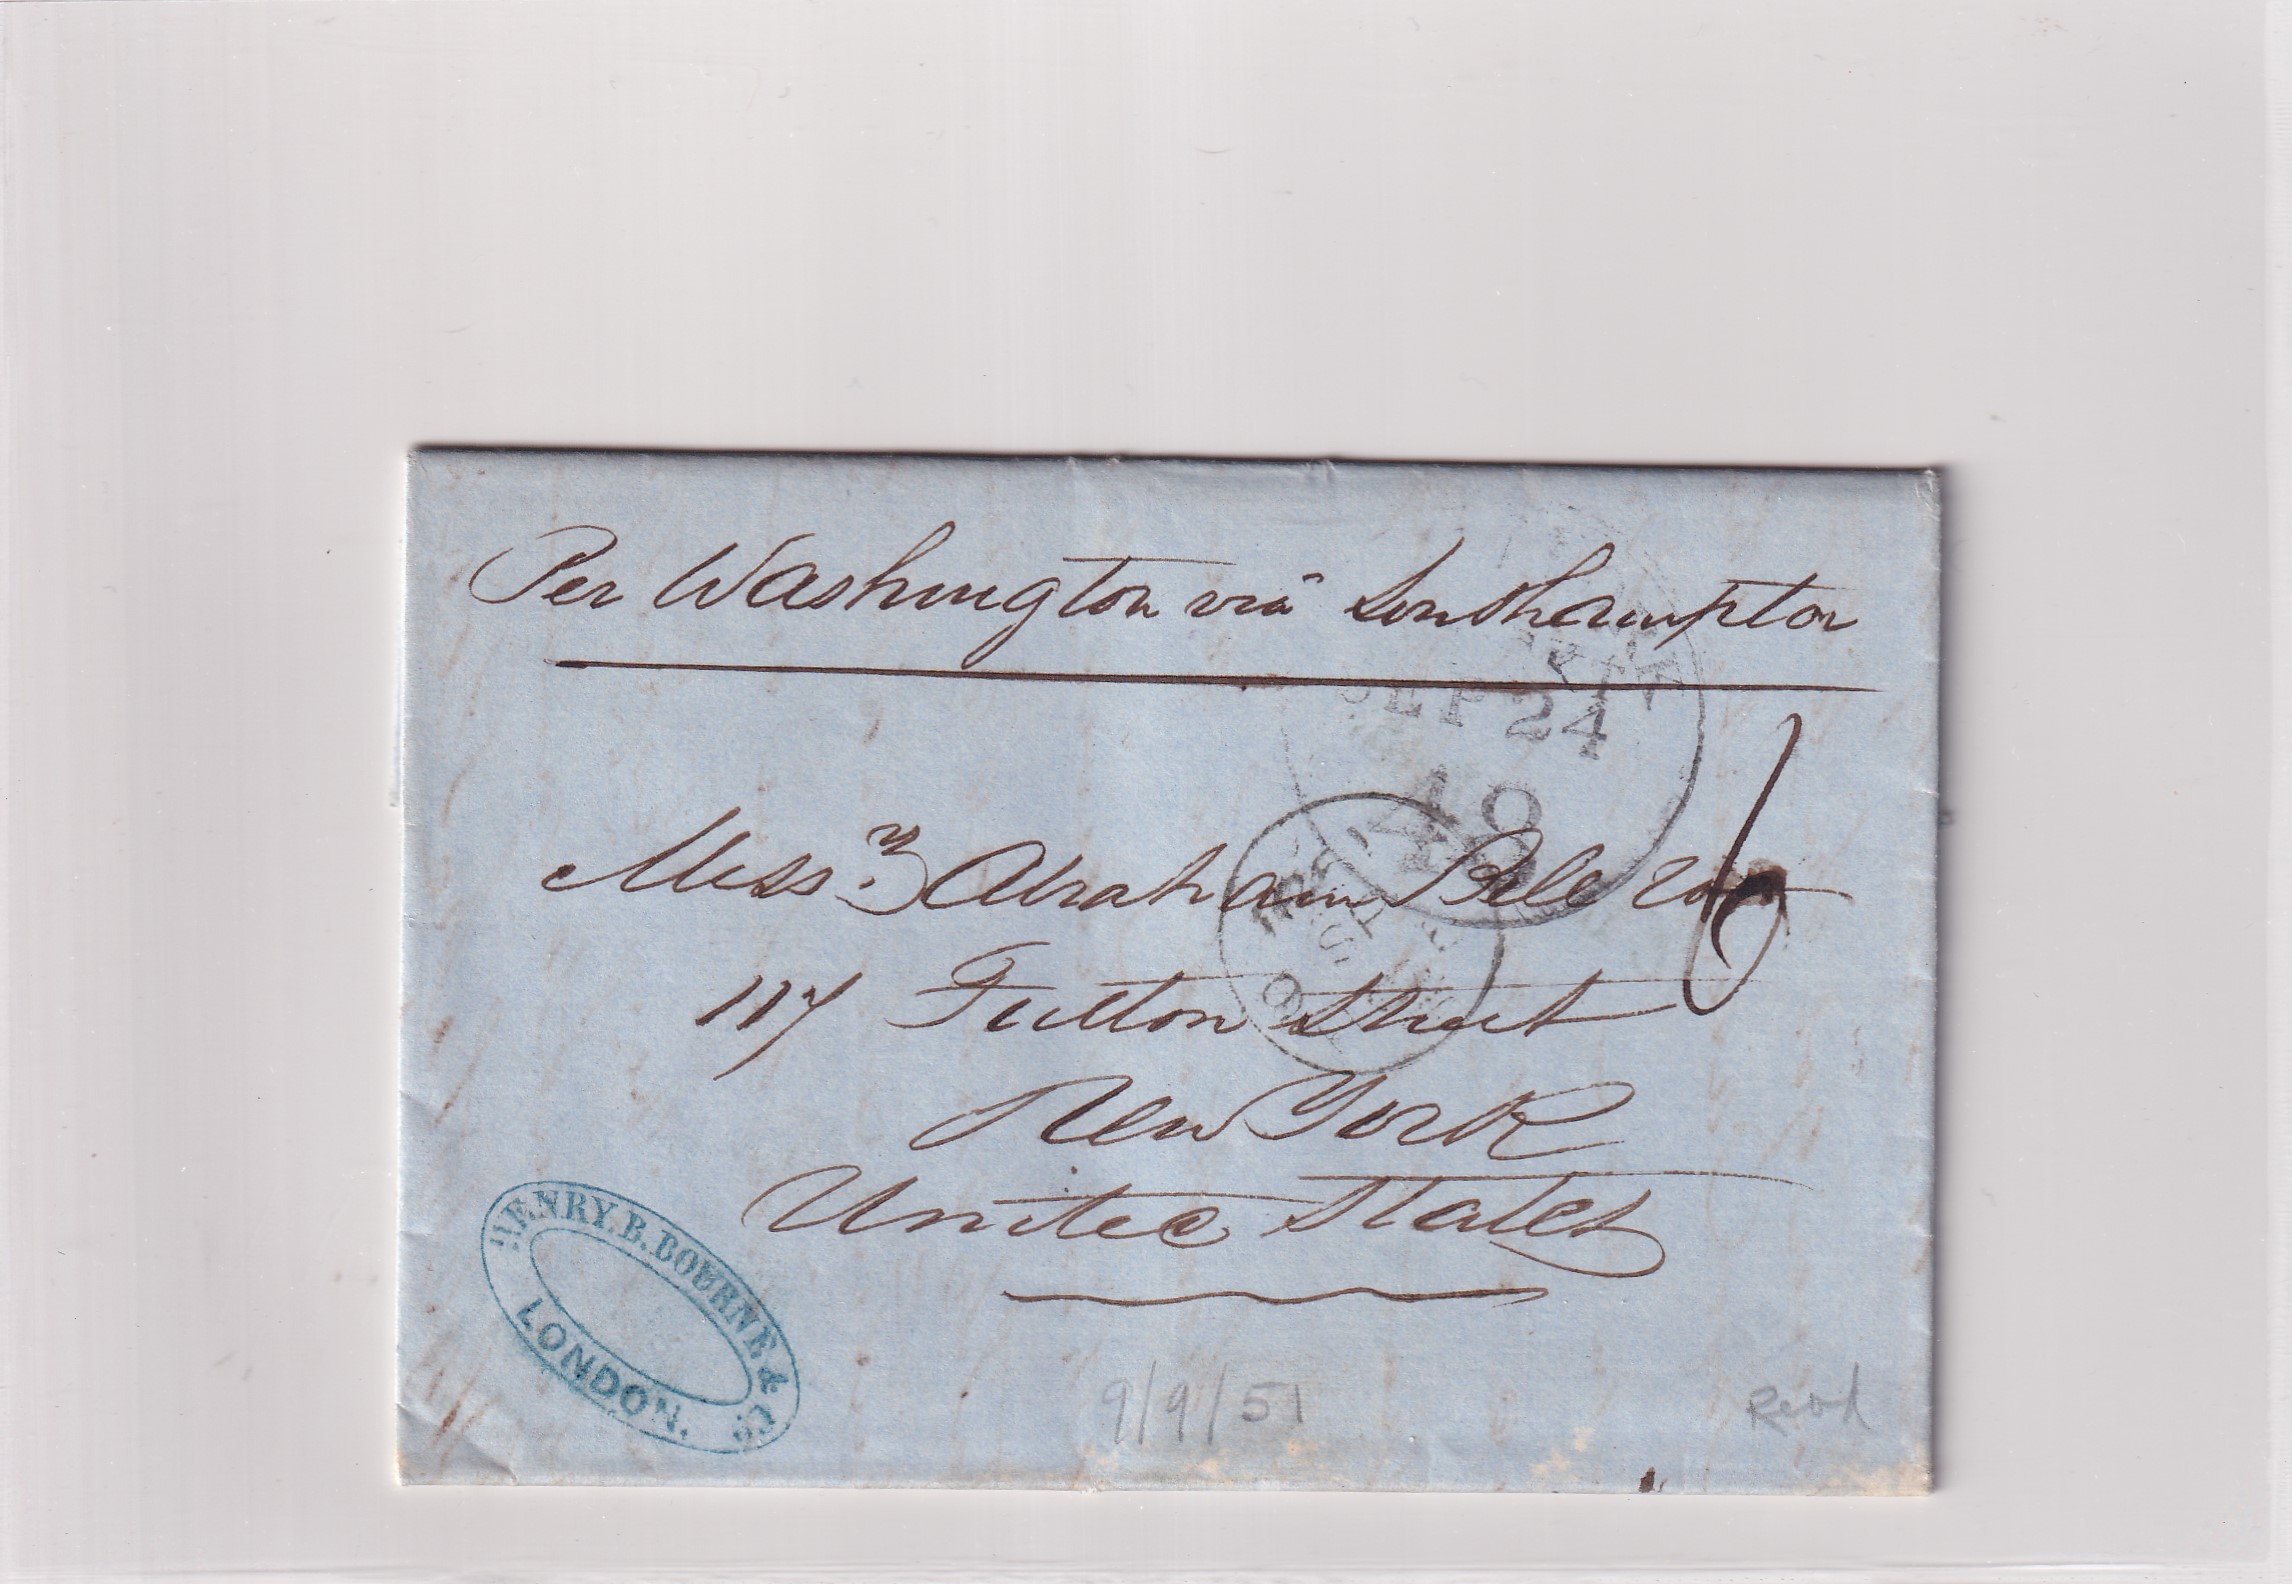 Per Washington via Southampton
SEP 24
48
Messrs Abraham Bell & Son
117 Fulton Street
New York
United States
6
HENRY. B. BOURNE & Co
LONDON.
9/9/51
Recd